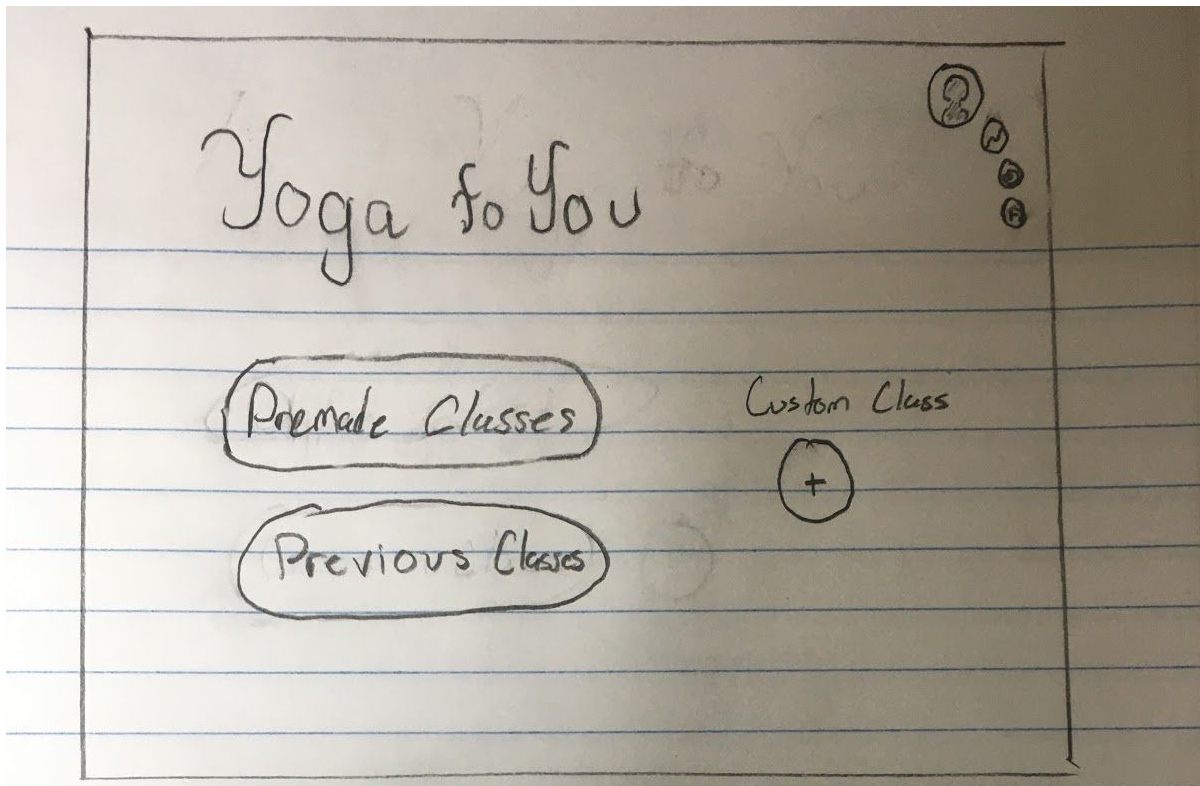 Yoga to You
Premade Classes
Custom Class
+
Previous Classes